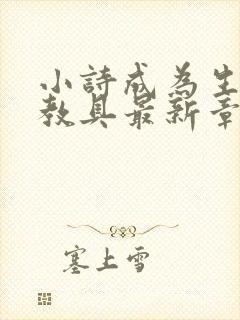 小詩成為生
教具最新章
塞上雪